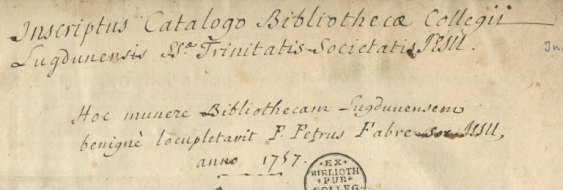 Inscriptus Catalogo Bibliothecæ Collegii
Lugdunensis SS.æ Trinitatis Societatis JESU.
Hoc munere Bibliothecam Lugdunensem
benignè locupletavit P. Petrus Fabre soc JESU,
anno 1757.
EX
BIBLIOTH
PUB
COLLEG